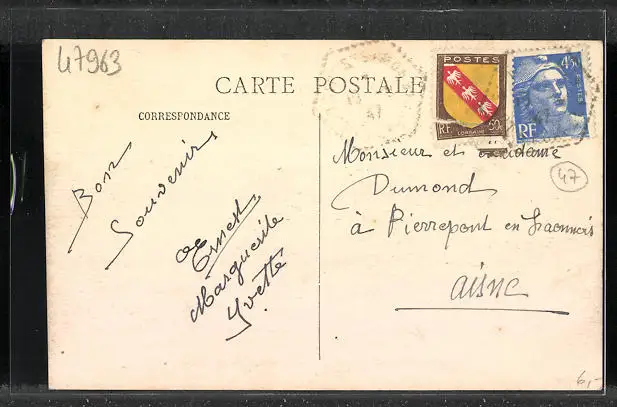 47963
CARTE POSTALE
CORRESPONDANCE
POSTES
RF
LORRAINE
60c
4f50
POSTES
RF
47
Bons
Souvenirs
de
Ernest
Marguerite
Yvette
Monsieur et Madame
Dumond
à Pierrepont en Laonnois
Aisne
47
6,-